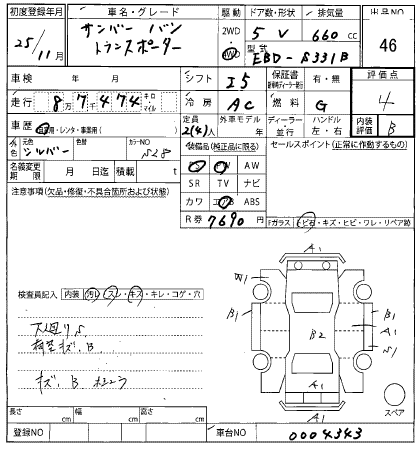 初度登録年月 車名・グレード 駆動 ドア数・形状 排気量 出品NO
25/11月 サンバー バン トランスポーター 2WD 4WD 5 V 660 cc 46
型式 EBD-S331B
車検 年 月 シフト I5 保証書 有・無 評価点
走行 8万7千474 キロ・マイル 冷房 AC 燃料 G 4
車歴 自家用・レンタ・事業用( ) 定員 2(4)人 外車モデル 年 ディーラー・並行 ハンドル 左・右 内装評価 B
外色 元色 シルバー 色替 カラーNO S28 装備品(純正品に限る) セールスポイント(正常に作動するもの)
名義変更期限 月 日迄 積載 t PS PW AW
注意事項(欠品・修復・不具合箇所および状態) SR TV ナビ
カワ エアB ABS
R券 7690 円 Fガラス トビ石・キズ・ヒビ・ワレ・リペア跡
A1
W1
検査員記入 内装 汚レ・スレ・キズ・キレ・コゲ・穴
B1 B2 B1
A1
S1
キズ、B
A1
A1
スペア
長さ cm 幅 cm 高さ cm
登録NO 車台NO 0004343